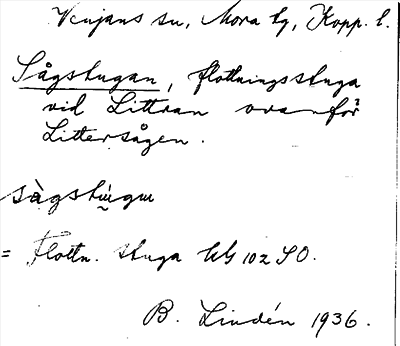 Venjans sn, Mora tg, Kopp. l.
Sågstugan, flottningsstuga
vid Littran ovanför
Littersågen.
sàgstu̬gu
= Flottn. stuga Uts 102 SO.
B. Lindén 1936.